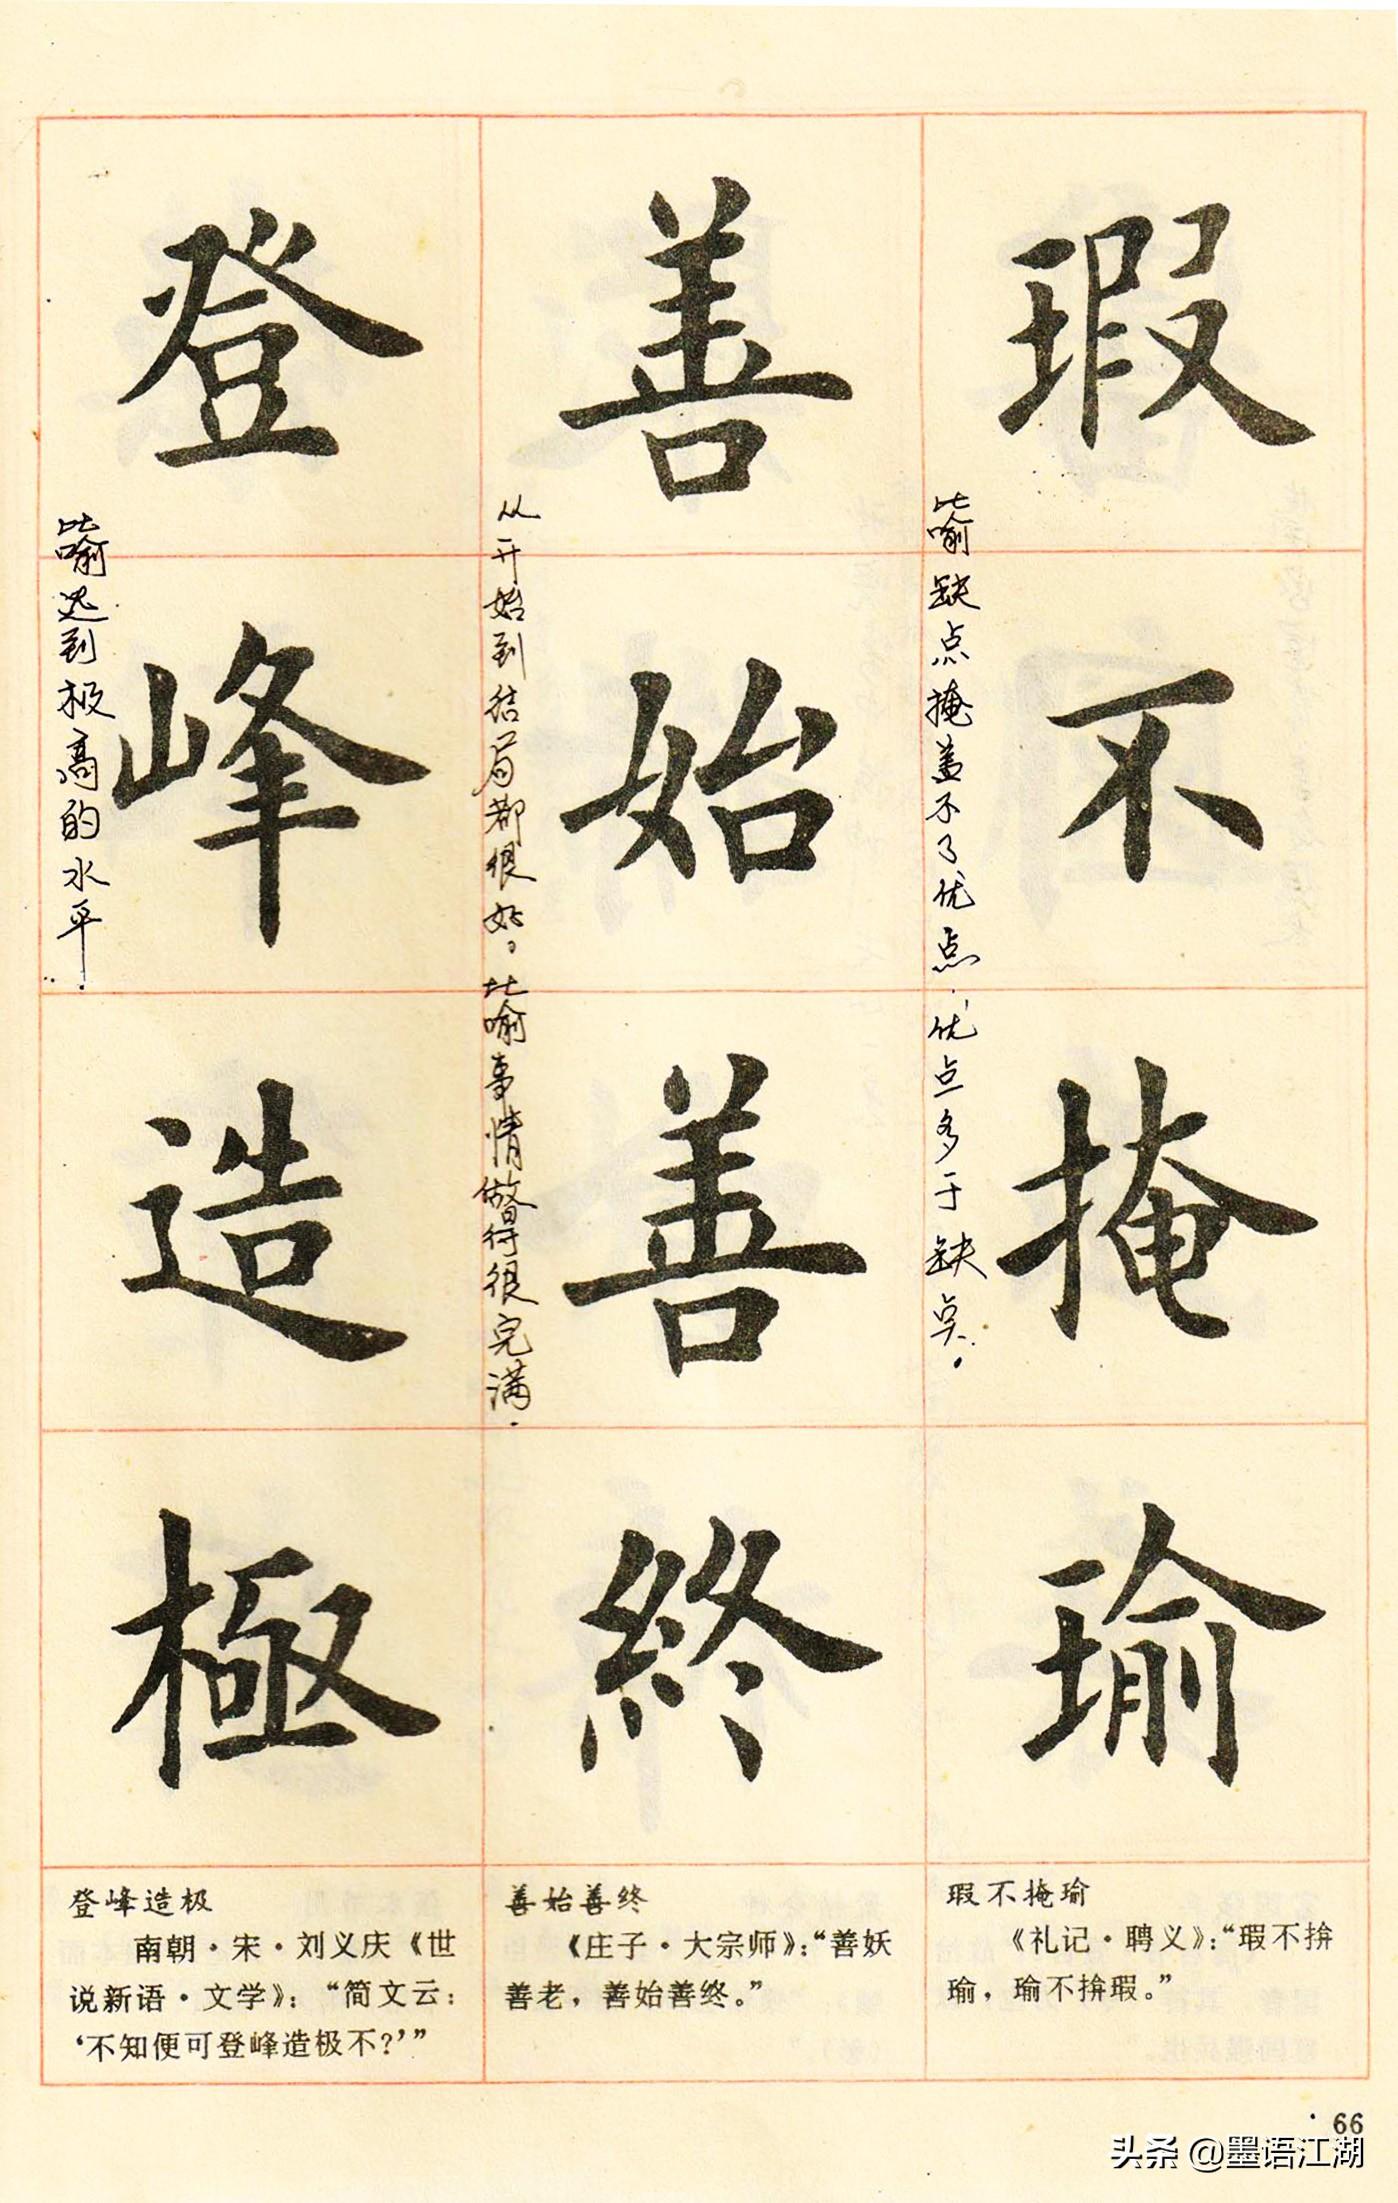 瑕不掩瑜
比喻缺点掩盖不了优点.优点多于缺点.
善始善終
从开始到结局都很好。比喻事情做得很完满.
登峰造極
比喻达到极高的水平.
瑕不掩瑜
《礼记·聘义》：“瑕不揜
瑜，瑜不揜瑕。”
善始善终
《庄子·大宗师》：“善妖
善老，善始善终。”
登峰造极
南朝·宋·刘义庆《世
说新语·文学》：“简文云：
‘不知便可登峰造极不？’”
· 66
头条 @墨语江湖